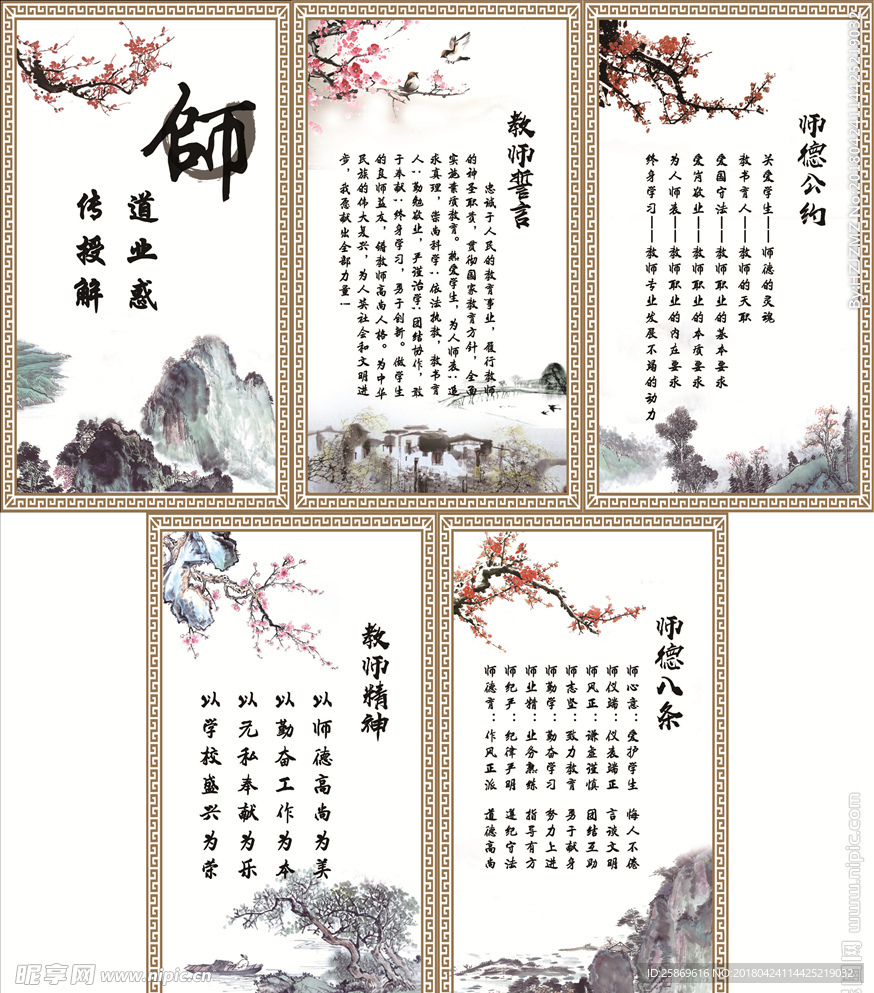 師
道业惑
传授解
教师誓言
忠诚于人民的教育事业，履行教师
的神圣职责，贯彻国家教育方针，全面
实施素质教育。热爱学生，为人师表；追
求真理，崇尚科学；依法执教，教书育
人；勤勉敬业，严谨治学；团结协作，敢
于奉献；终身学习，勇于创新。做学生
的良师益友，铸教师高尚人格。为中华
民族的伟大复兴，为人类社会和文明进
步，我愿献出全部力量！
师德公约
关爱学生——师德的灵魂
教书育人——教师的天职
爱国守法——教师职业的基本要求
爱岗敬业——教师职业的本质要求
为人师表——教师职业的内在要求
终身学习——教师专业发展不竭的动力
教师精神
以师德高尚为美
以勤奋工作为本
以无私奉献为乐
以学校盛兴为荣
师德八条
师心意：爱护学生 悔人不倦
师仪端：仪表端正 言谈文明
师风正：谦虚谨慎 团结互助
师志坚：致力教育 勇于献身
师勤学：勤奋学习 努力上进
师业精：业务熟练 指导有方
师纪严：纪律严明 遵纪守法
师德育：作风正派 道德高尚
昵享网 www.nipic.cn
ID:25869616 NO:20180424114425219032
www.nipic.com